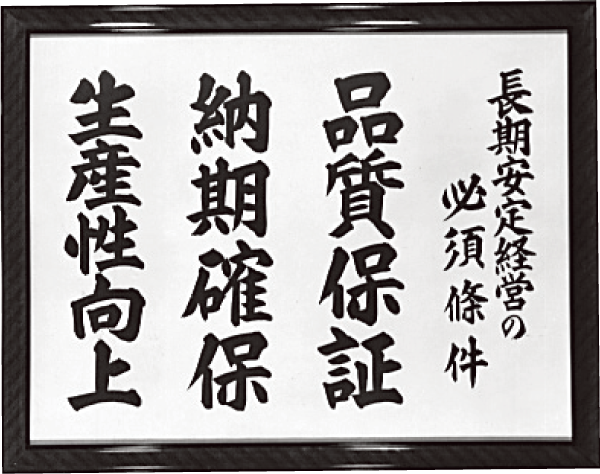 長期安定経営の
必須條件
品質保証
納期確保
生産性向上